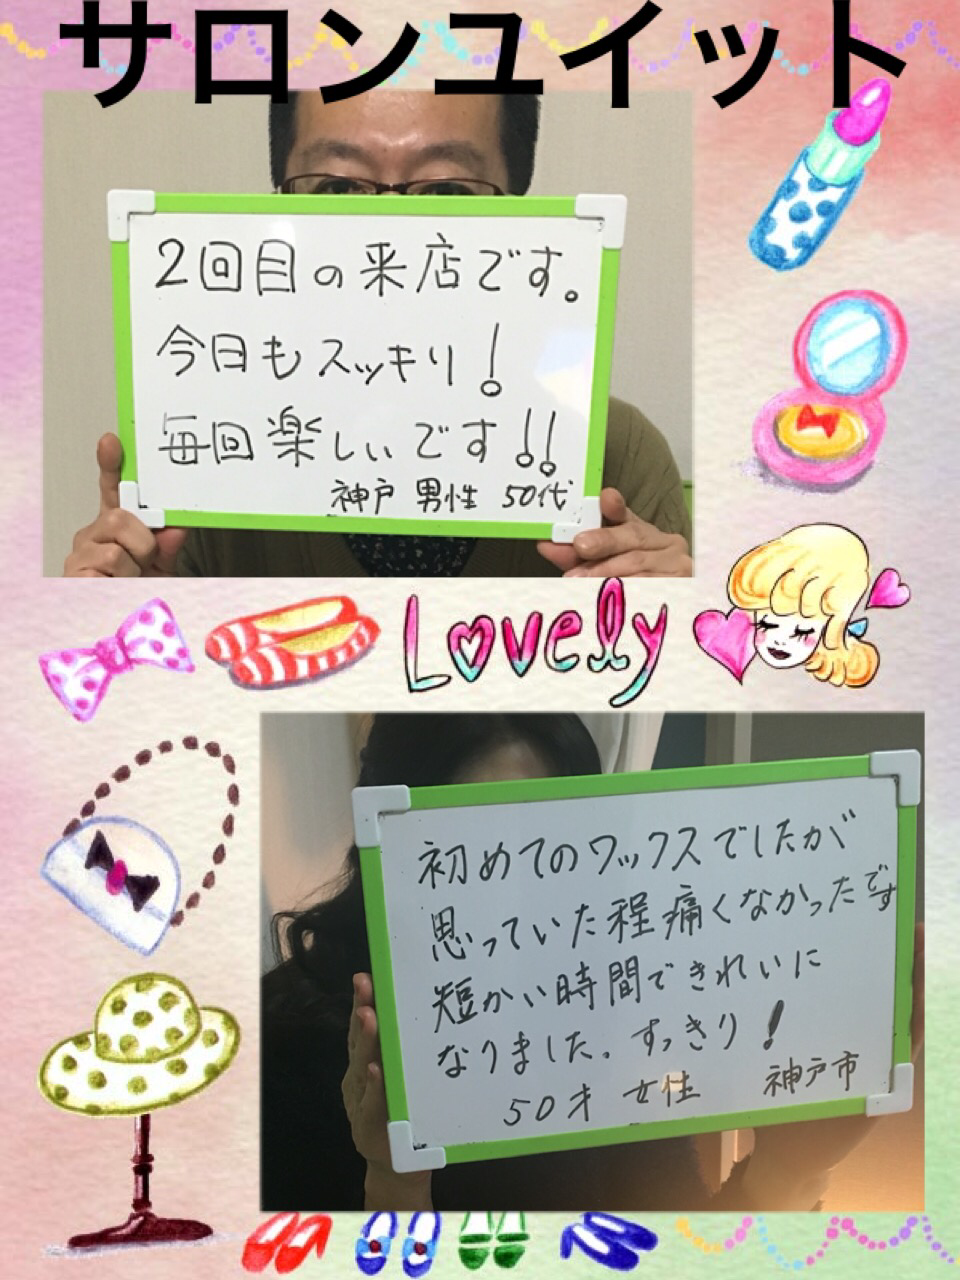 サロンユイット
2回目の来店です。
今日もスッキリ!
毎回楽しいです!!
神戸 男性 50代
Lovely
初めてのワックスでしたが
思っていた程痛くなかったです
短かい時間できれいに
なりました。すっきり!
50才 女性 神戸市